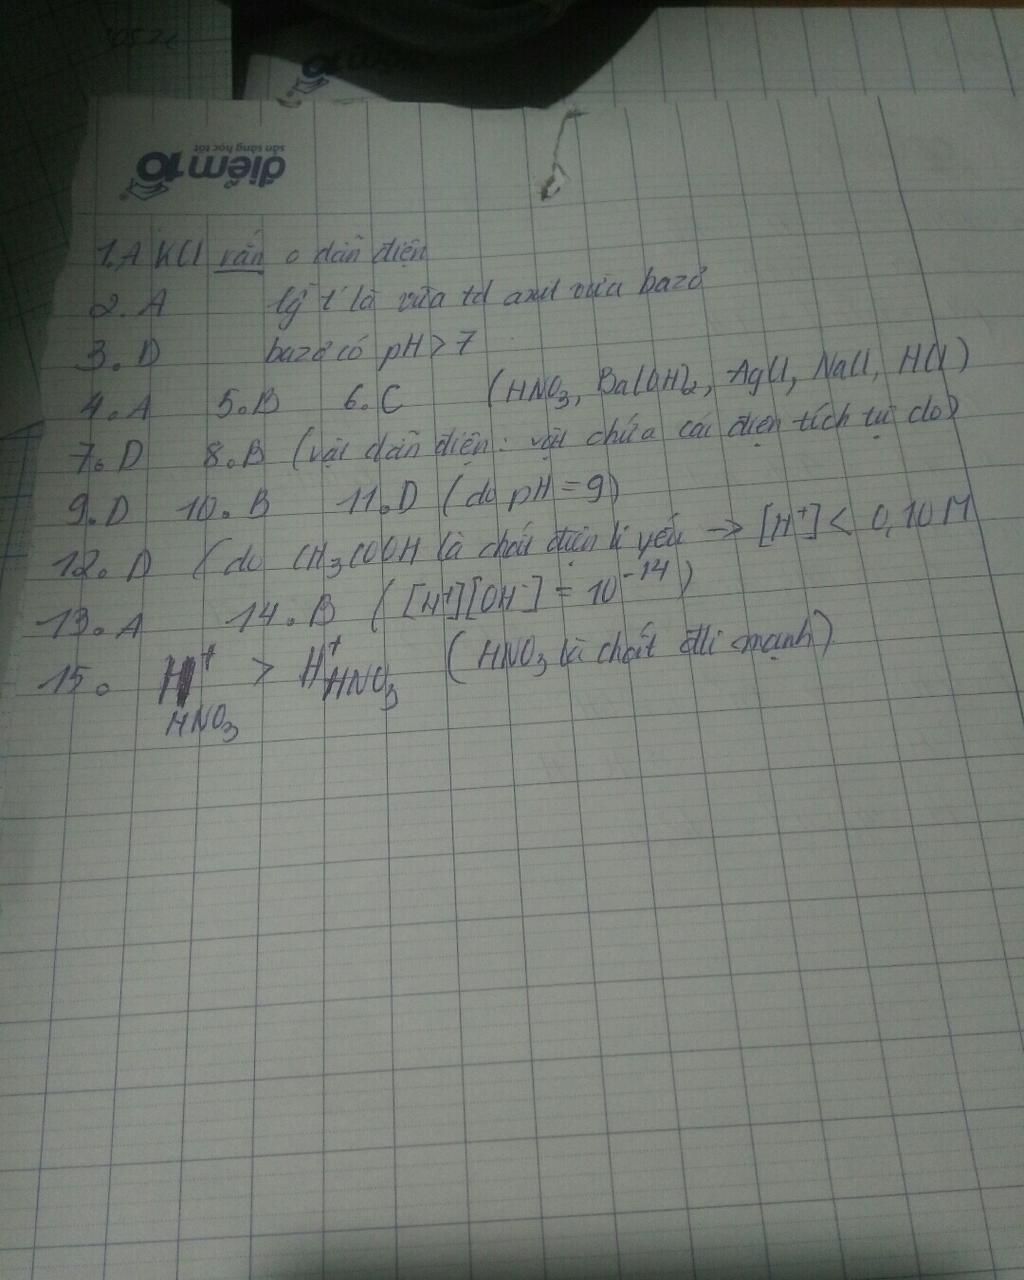 điểm10
sẵn sàng học tốt
1.A KCl rắn o dẫn điện
2. A là vừa td axit vừa bazơ
3. D bazơ có pH > 7
4. A 5. B 6. C (HNO₃, Ba(OH)₂, AgCl, NaCl, HCl)
7. D 8. B (vật dẫn điện: vật chứa các điện tích tự do)
9. D 10. B 11. D (do pH = 9)
12. D (do CH₃COOH là chất điện li yếu → [H⁺] < 0,10M
13. A 14. B ([H⁺][OH⁻] = 10⁻¹⁴)
15. H⁺ HNO₃ > H⁺ HNO₃ (HNO₃ là chất đli mạnh)